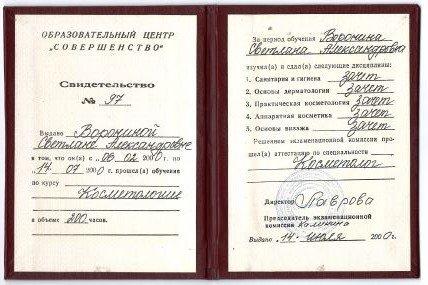 ОБРАЗОВАТЕЛЬНЫЙ ЦЕНТР
„СОВЕРШЕНСТВО"
Свидетельство
№ 97
Выдано Ворониной
Светлане Александровне
в том, что он(а) с 08.02 2000 г. по
14.07 2000 г. прошел(а) обучение
по курсу
Косметологии
в объеме 200 часов.
За период обучения Воронина
Светлана Александровна
изучил(а) и сдал(а) следующие дисциплины:
1. Санитария и гигиена зачет
2. Основы дерматологии Зачет
3. Практическая косметология Зачет
4. Аппаратная косметика Зачет
5. Основы визажа Зачет
Решением экзаменационной комиссии про-
шел(а) аттестацию по специальности
Косметолог
Директор Лаврова
Председатель экзаменационной
комиссии Калинина
Выдано „14" июля 2000 г.